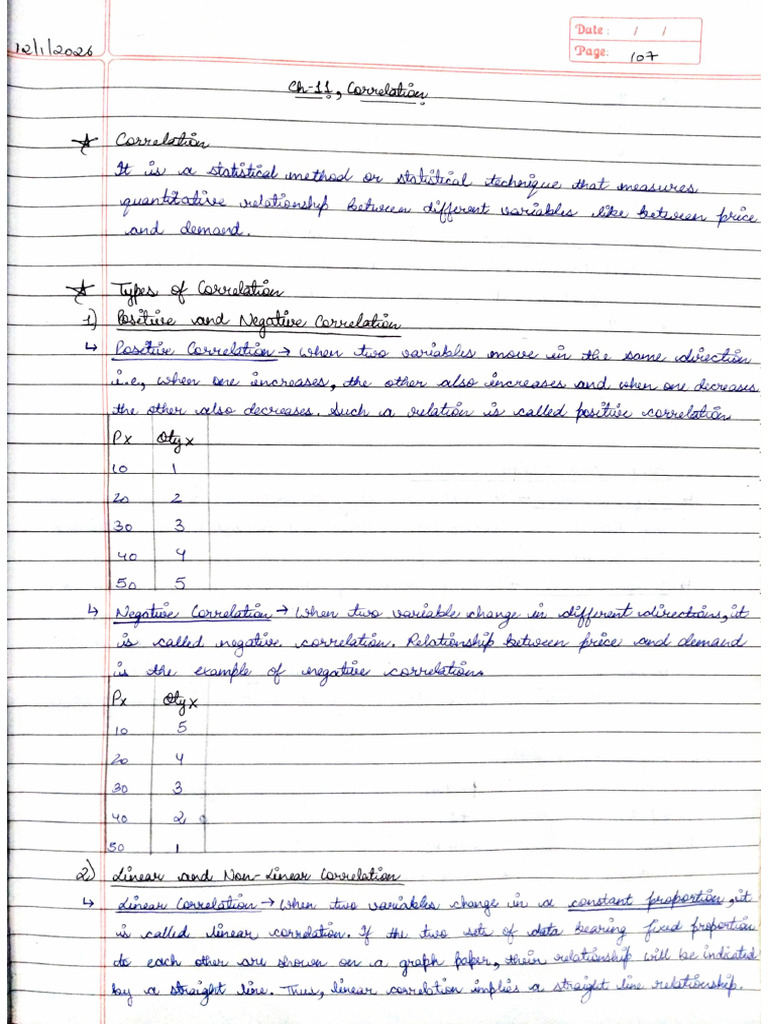 12/1/2026
Date: / /
Page: 107
Ch-11, Correlation
☆ Correlation
It is a statistical method or statistical technique that measures
quantitative relationship between different variables like between price
and demand.
☆ Types of Correlation
1) Positive and Negative Correlation
↳ Positive Correlation → when two variables move in the same direction
i.e, when one increases, the other also increases and when one decreases
the other also decreases. Such a relation is called positive correlation
Px Qty x
10 1
20 2
30 3
40 4
50 5
↳ Negative Correlation → When two variable change in different directions, it
is called negative correlation. Relationship between price and demand
is the example of negative correlation.
Px Qty x
10 5
20 4
30 3
40 2
50 1
2) Linear and Non-Linear Correlation
↳ Linear Correlation → When two variables change in a constant proportion, it
is called linear correlation. If the two sets of data bearing fixed proportion
to each other are shown on a graph paper, their relationship will be indicated
by a straight line. Thus, linear correlation implies a straight line relationship.